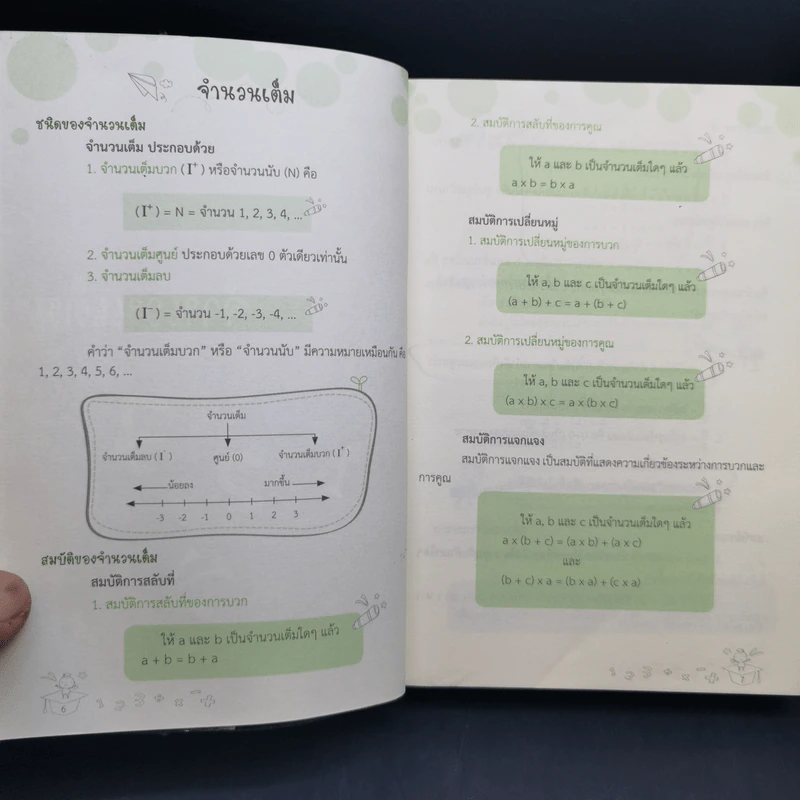 จำนวนเต็ม
ชนิดของจำนวนเต็ม
จำนวนเต็ม ประกอบด้วย
1. จำนวนเต็มบวก (I⁺) หรือจำนวนนับ (N) คือ
(I⁺) = N = จำนวน 1, 2, 3, 4, ...
2. จำนวนเต็มศูนย์ ประกอบด้วยเลข 0 ตัวเดียวเท่านั้น
3. จำนวนเต็มลบ
(I⁻) = จำนวน -1, -2, -3, -4, ...
คำว่า “จำนวนเต็มบวก” หรือ “จำนวนนับ” มีความหมายเหมือนกัน คือ
1, 2, 3, 4, 5, 6, ...
จำนวนเต็ม
จำนวนเต็มลบ (I⁻) ศูนย์ (0) จำนวนเต็มบวก (I⁺)
น้อยลง มากขึ้น
-3 -2 -1 0 1 2 3
สมบัติของจำนวนเต็ม
สมบัติการสลับที่
1. สมบัติการสลับที่ของการบวก
ให้ a และ b เป็นจำนวนเต็มใดๆ แล้ว
a + b = b + a
6
2. สมบัติการสลับที่ของการคูณ
ให้ a และ b เป็นจำนวนเต็มใดๆ แล้ว
a x b = b x a
สมบัติการเปลี่ยนหมู่
1. สมบัติการเปลี่ยนหมู่ของการบวก
ให้ a, b และ c เป็นจำนวนเต็มใดๆ แล้ว
(a + b) + c = a + (b + c)
2. สมบัติการเปลี่ยนหมู่ของการคูณ
ให้ a, b และ c เป็นจำนวนเต็มใดๆ แล้ว
(a x b) x c = a x (b x c)
สมบัติการแจกแจง
สมบัติการแจกแจง เป็นสมบัติที่แสดงความเกี่ยวข้องระหว่างการบวกและ
การคูณ
ให้ a, b และ c เป็นจำนวนเต็มใดๆ แล้ว
a x (b + c) = (a x b) + (a x c)
และ
(b + c) x a = (b x a) + (c x a)
7